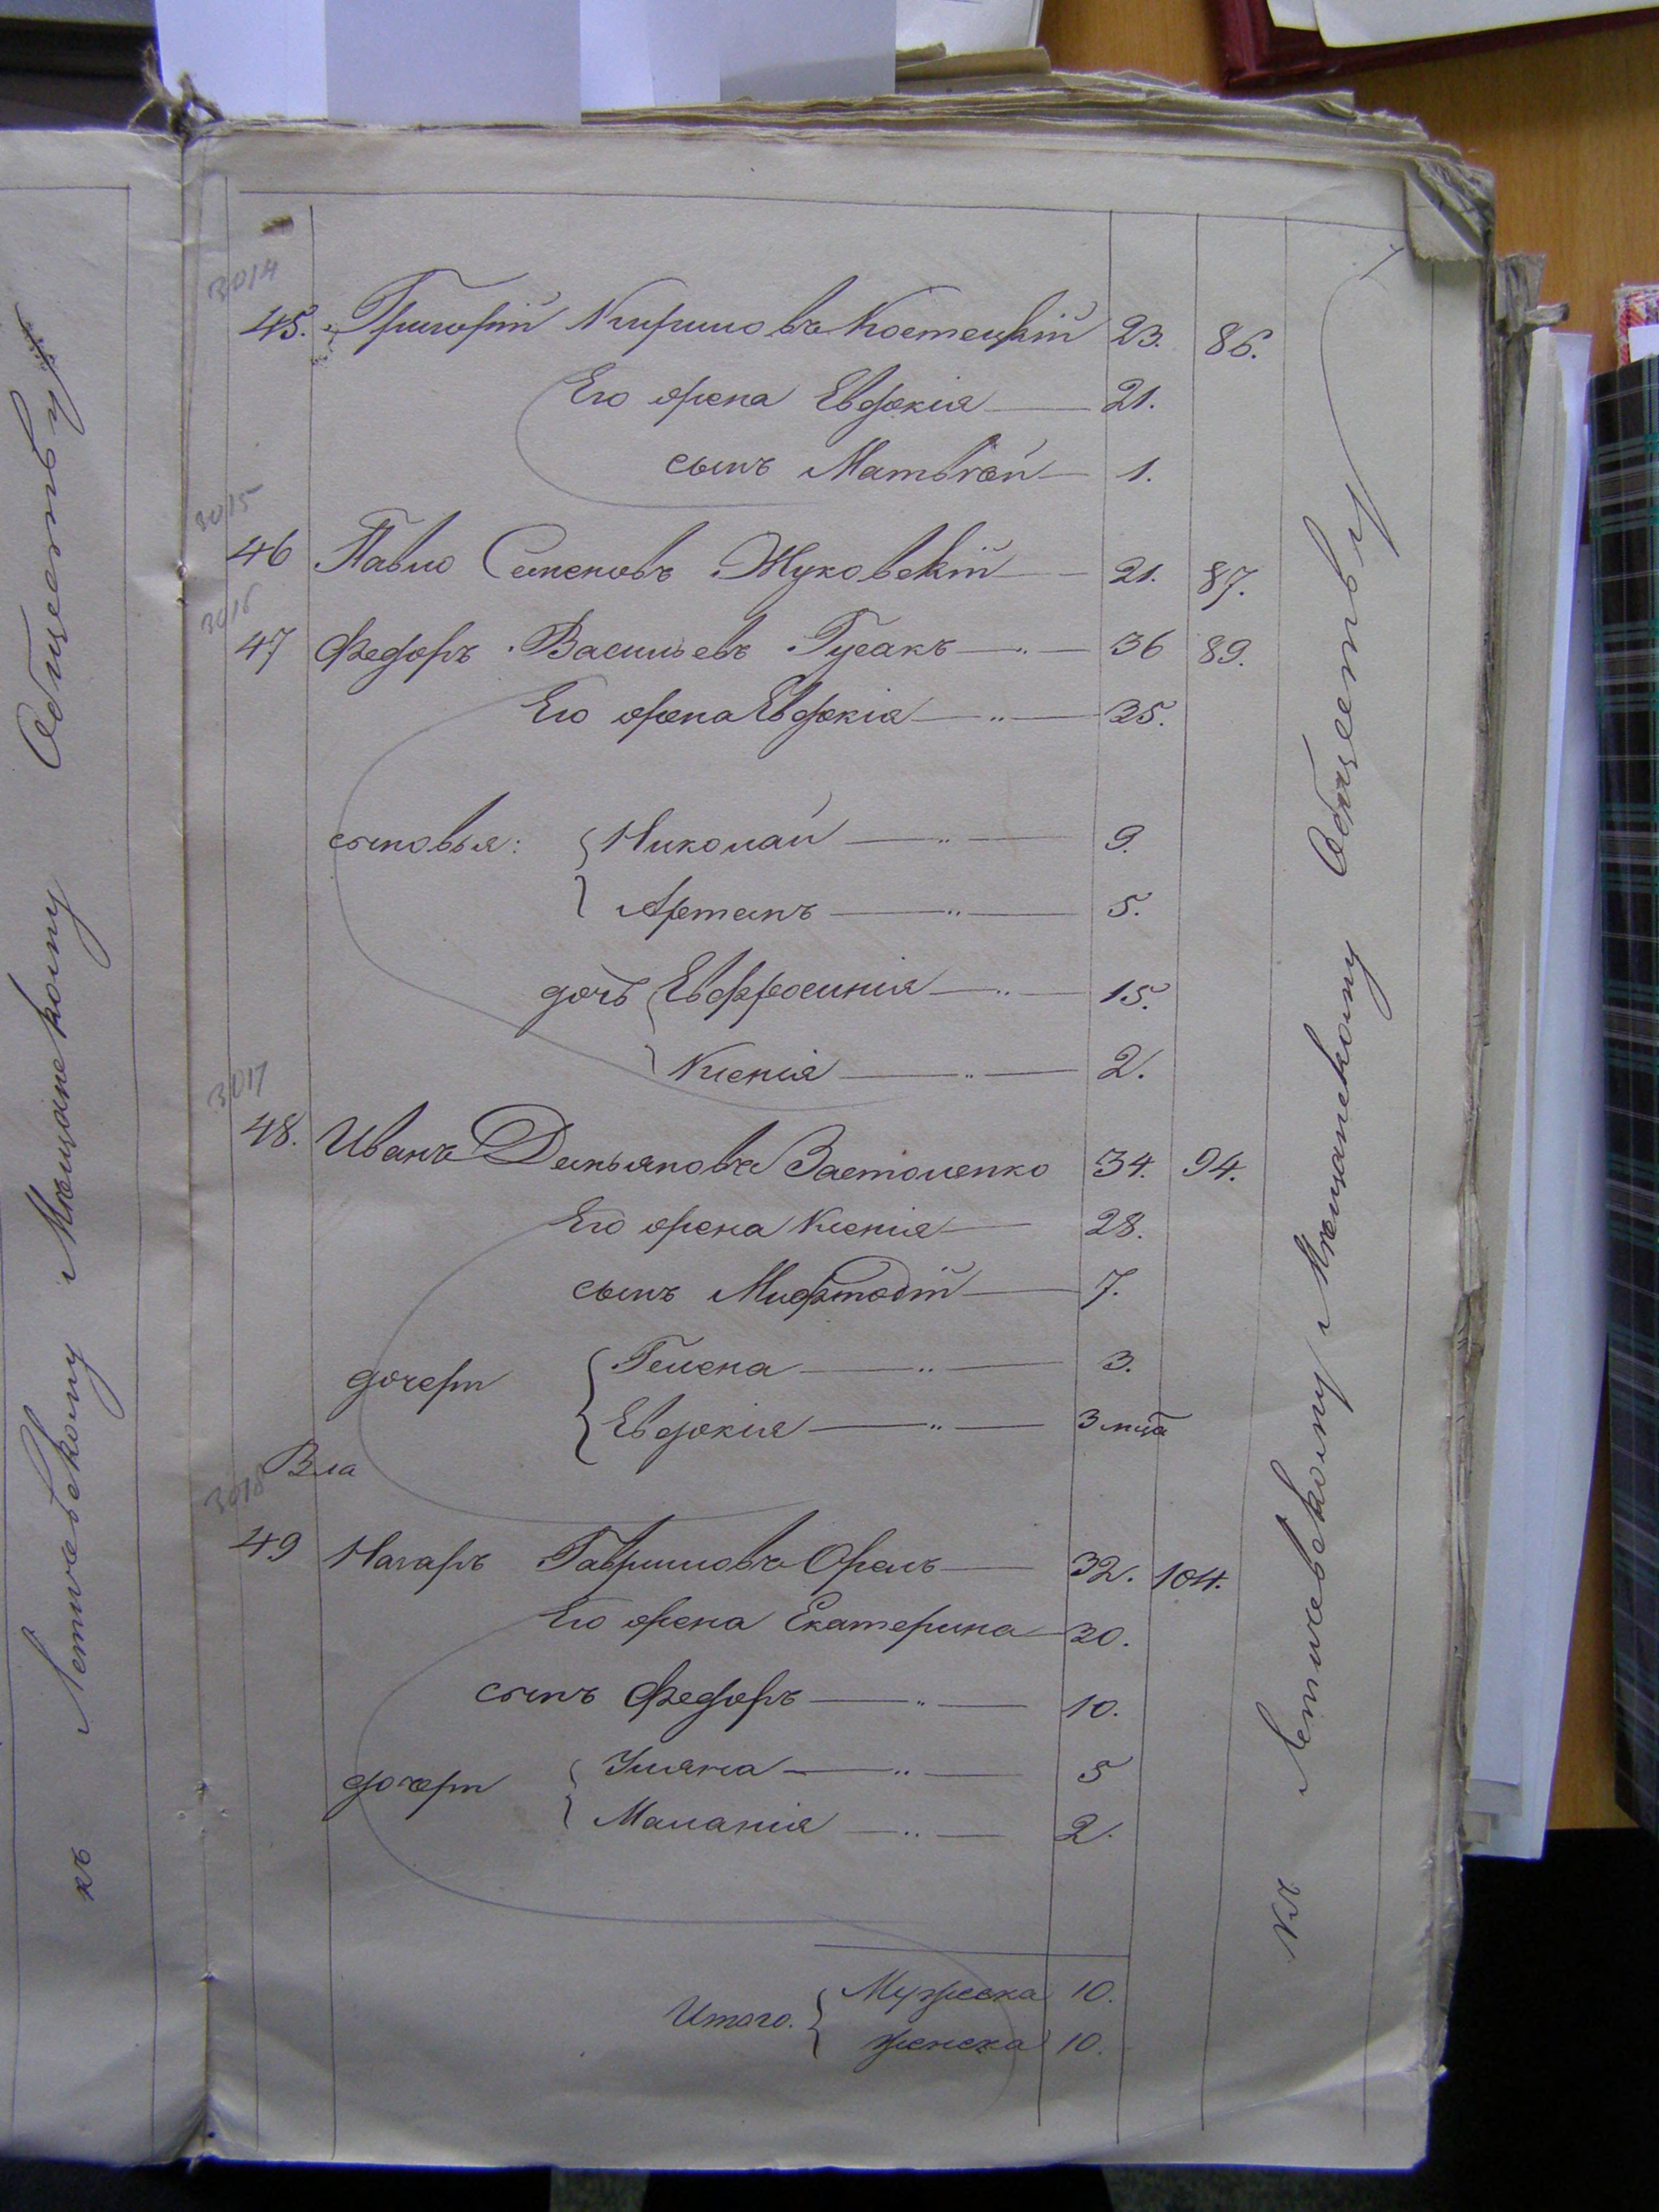 3014
45. Григорій Кириловъ Костецкій 23. 86.
Его жена Евдокія 21.
сынъ Матвѣй 1.
3015
46 Павло Семеновъ Жуковскій 21. 87.
3016
47 Федоръ Васильевъ Гусакъ 36 89.
Его жена Евдокія 35.
сыновья: Николай 9.
Артемъ 5.
дочь Евфросинія 15.
Ксенія 2.
3017
48. Иванъ Демьяновъ Застоленко 34. 94.
Его жена Ксенія 28.
сынъ Мифтодій 7.
дочери Гелена 3.
Евдокія 3 мца
Вла
3018
49 Назаръ Гавриловъ Орелъ 32. 104.
Его жена Екатерина 30.
сынъ Федоръ 10.
дочери Уляна 5
Маланія 2.
Итого. Мужеска 10.
женска 10.
Къ Летичевскому Мѣщанскому Обществу
къ Летичевскому Мѣщанскому Обществу